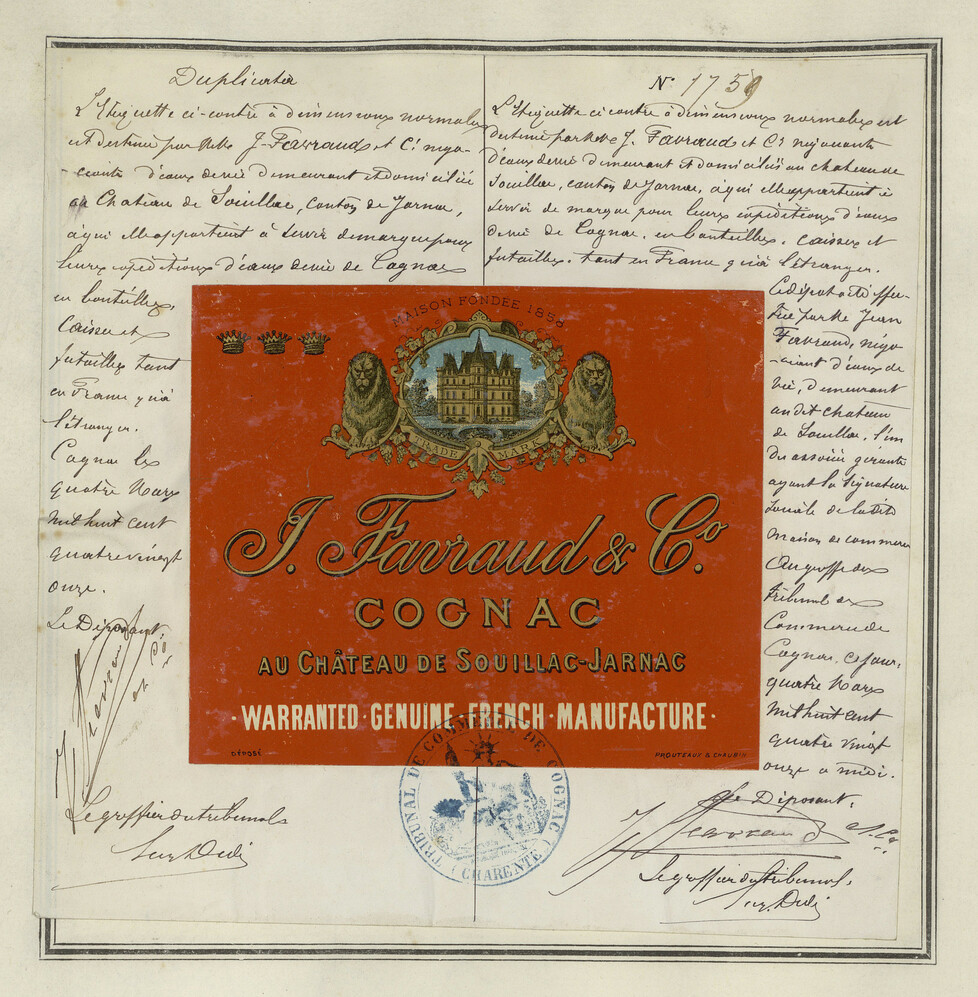 Duplicata
L'Etiquette ci-contre à dimensions normales
est destinée par MMrs J. Favraud et Cie négo-
ciants d'eaux de vie demeurant et domiciliés
au Chateau de Souillac, canton de Jarnac,
à qui elle appartient à servir de marque pour
leurs expéditions d'eaux de vie de Cognac
en bouteilles,
caisses et
futailles tant
en France qu'à
l'étranger.
Cognac le
quatre Mars
mil huit cent
quatre vingt
onze.
Le Déposant
J. Favraud et Co
Le greffier du tribunal
N° 1759
L'Etiquette ci contre à dimensions normales est
destinée par MMrs J. Favraud et Co négociants
d'eaux de vie demeurant et domiciliés au chateau de
Souillac, canton de Jarnac, à qui elle appartient à
servir de marque pour leurs expéditions d'eaux
de vie de Cognac, en bouteilles, caisses et
futailles, tant en France qu'à l'étranger.
Ce dépot a été effec-
tué par Mr Jean
Favraud, négo-
ciant d'eaux de
vie, demeurant
au dit chateau
de Souillac, l'un
des associés gérants
ayant la signature
sociale de la dite
maison de commerce
Au greffe du
tribunal de
Commerce de
Cognac, ce jour,
quatre Mars
mil huit cent
quatre vingt
onze à midi.
Le Déposant,
J. Favraud & Co
Le greffier du tribunal,
MAISON FONDÉE 1858
TRADE MARK
J. Favraud & Co.
COGNAC
AU CHÂTEAU DE SOUILLAC-JARNAC
·WARRANTED·GENUINE·FRENCH·MANUFACTURE·
DÉPOSÉ
PROUTEAUX & CHAUBIN
TRIBUNAL DE COMMERCE DE COGNAC
(CHARENTE)